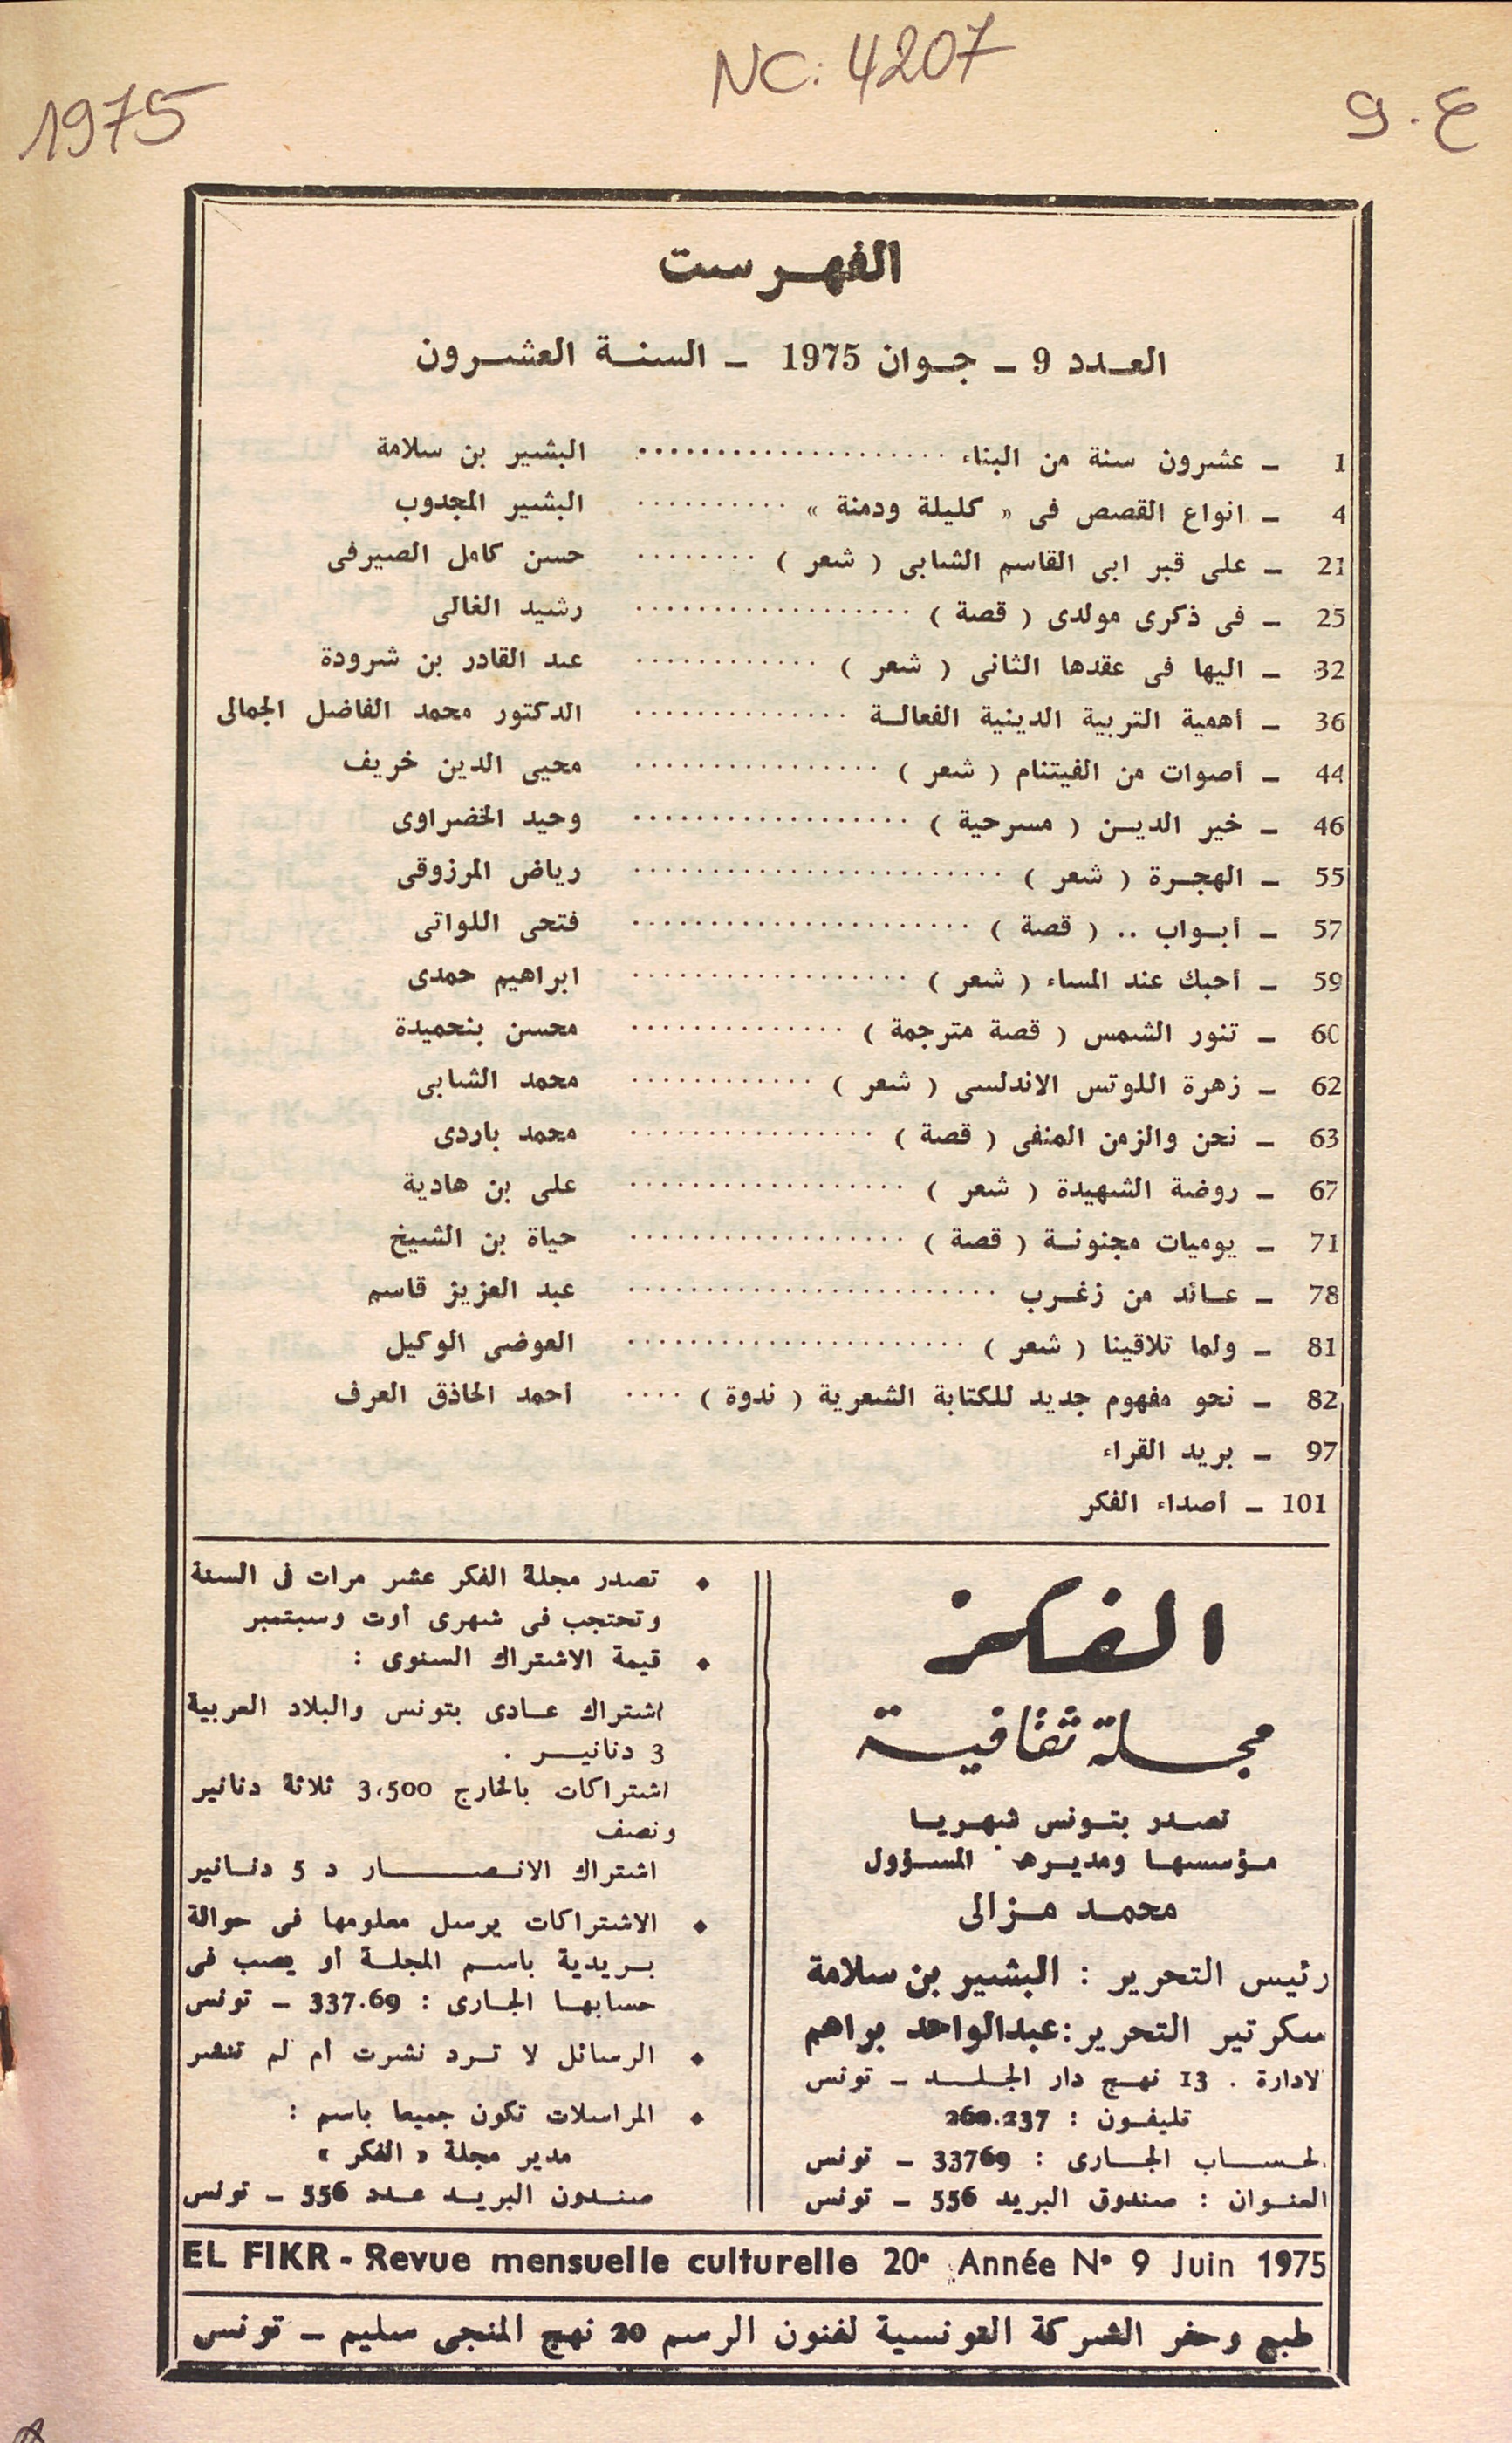 NC: 4207
1975
ع. 9
الفهرست
العدد 9 ـ جوان 1975 ـ السنة العشرون
1 ـ عشرون سنة من البناء .................... البشير بن سلامة
4 ـ انواع القصص فى « كليلة ودمنة » .......... البشير المجدوب
21 ـ على قبر ابى القاسم الشابى ( شعر ) ........ حسن كامل الصيرفى
25 ـ فى ذكرى مولدى ( قصة ) .................. رشيد الغالى
32 ـ اليها فى عقدها الثانى ( شعر ) ............ عبد القادر بن شرودة
36 ـ أهمية التربية الدينية الفعالة .............. الدكتور محمد الفاضل الجمالى
44 ـ أصوات من الفيتنام ( شعر ) ................ محيى الدين خريف
46 ـ خير الدين ( مسرحية ) .................. وحيد الخضراوى
55 ـ الهجرة ( شعر ) ........................ رياض المرزوقى
57 ـ أبواب .. ( قصة ) ...................... فتحى اللواتى
59 ـ أحبك عند المساء ( شعر ) .................. ابراهيم حمدى
60 ـ تنور الشمس ( قصة مترجمة ) .............. محسن بنحميدة
62 ـ زهرة اللوتس الاندلسى ( شعر ) ............ محمد الشابى
63 ـ نحن والزمن المنفى ( قصة ) ................ محمد باردى
67 ـ روضة الشهيدة ( شعر ) .................. على بن هادية
71 ـ يوميات مجنونة ( قصة ) .................. حياة بن الشيخ
78 ـ عائد من زغرب ........................ عبد العزيز قاسم
81 ـ ولما تلاقينا ( شعر ) ...................... العوضى الوكيل
82 ـ نحو مفهوم جديد للكتابة الشعرية ( ندوة ) .... أحمد الحاذق العرف
97 ـ بريد القراء
101 ـ أصداء الفكر
الفكر
مجلة ثقافية
تصدر بتونس شهريا
مؤسسها ومديرها المسؤول
محمد مزالى
رئيس التحرير : البشير بن سلامة
سكرتير التحرير : عبدالواحد براهم
لادارة . 13 نهج دار الجلد ـ تونس
تليفون : 260.237
لحساب الجارى : 33769 ـ تونس
العنوان : صندوق البريد 556 ـ تونس
♦ تصدر مجلة الفكر عشر مرات فى السنة
وتحتجب فى شهرى أوت وسبتمبر
♦ قيمة الاشتراك السنوى :
اشتراك عادى بتونس والبلاد العربية
3 دنانير .
اشتراكات بالخارج 3،500 ثلاثة دنانير
ونصف
اشتراك الانصار د 5 دنانير
♦ الاشتراكات يرسل معلومها فى حوالة
بريدية باسم المجلة أو يصب فى
حسابها الجارى : 337.69 ـ تونس
♦ الرسائل لا ترد نشرت أم لم تنشر
♦ المراسلات تكون جميعا باسم :
مدير مجلة « الفكر »
صندوق البريد عدد 556 ـ تونس
EL FIKR - Revue mensuelle culturelle 20e Année N° 9 Juin 1975
طبع وحفر الشركة التونسية لفنون الرسم 20 نهج المنجى سليم ـ تونس